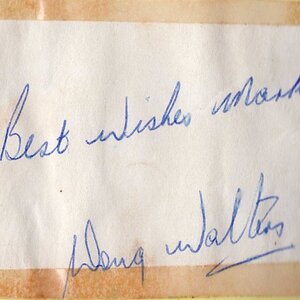 Best wishes Mark
Doug Walters